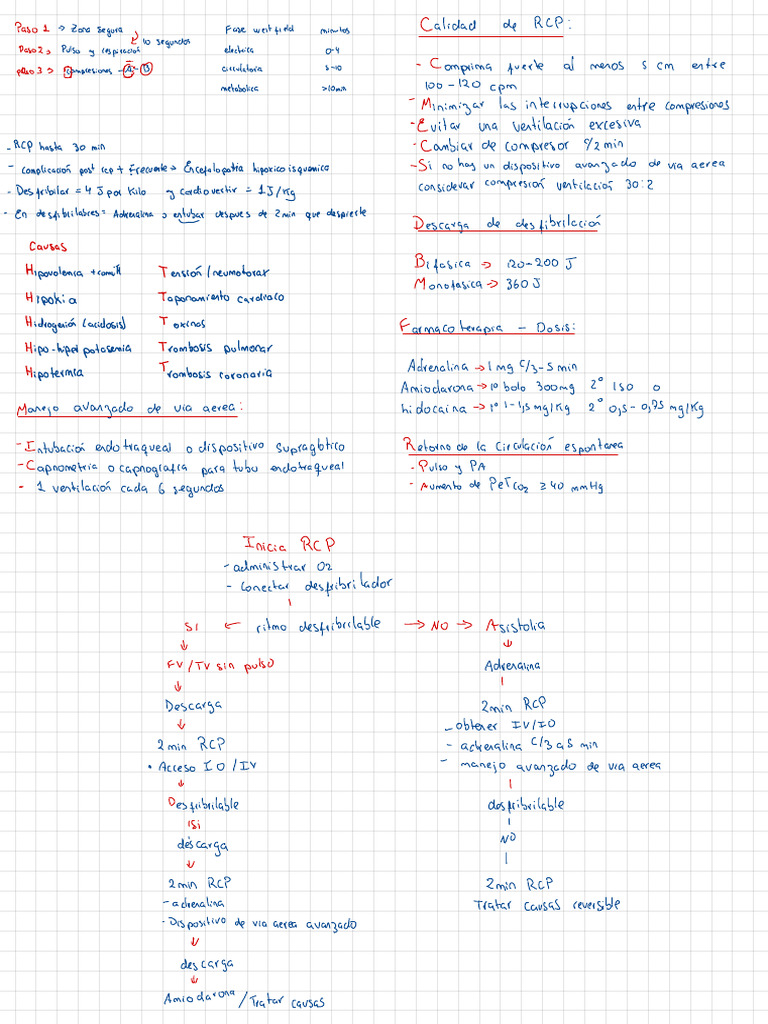 Paso 1 → Zona segura
Paso 2 → Pulso y respiración
10 segundos
paso 3 → Compresiones - A - B
Fase westfield minutos
electrica 0-4
circulatoria 5-10
metabolica >10min
- RCP hasta 30 min
- complicación post rcp + frecuente → Encefalopatia hipoxico isquemica
- Desfribilar = 4 J por Kilo y cardiovertir = 1J/Kg
- En desfibrilabres = Adrenalina → entubar despues de 2 min que despierte
Causas
Hipovolemia
Tensión/neumotorax
Hipoxia
Taponamiento cardiaco
Hidrogenión (acidosis)
Toxinas
Hipo-hiper potasemia
Trombosis pulmonar
Hipotermia
Trombosis coronaria
Manejo avanzado de via aerea:
- Intubación endotraqueal o dispositivo supraglotico
- Capnometria o capnografia para tubo endotraqueal
- 1 ventilación cada 6 segundos
Calidad de RCP:
- Comprima fuerte al menos 5 cm entre
100-120 cpm
- Minimizar las interrupciones entre compresiones
- Evitar una ventilación excesiva
- Cambiar de compresor c/2 min
- Si no hay un dispositivo avanzado de via aerea
considerar compresión ventilación 30:2
Descarga de desfibrilación
Bifasica → 120-200 J
Monofasica → 360 J
Farmacoterapia - Dosis:
Adrenalina → 1 mg c/3-5 min
Amiodarona → 1° bolo 300mg 2° 150 o
lidocaina → 1° 1-1,5 mg/Kg 2° 0,5-0,75 mg/Kg
Retorno de la Circulación espontanea
- Pulso y PA
- Aumento de PeTCO2 ≥ 40 mmHg
Inicia RCP
- administrar O2
- conectar desfribrilador
SI ← ritmo desfribrilable → NO → Asistolia
FV/TV sin pulso
Descarga
2 min RCP
• Acceso IO/IV
Desfribilable
Si
descarga
2 min RCP
- adrenalina
- Dispositivo de via aerea avanzado
descarga
Amiodarona/Tratar causas
Adrenalina
2min RCP
- obtener IV/IO
- adrenalina c/3 a 5 min
- manejo avanzado de via aerea
desfibrilable
NO
2 min RCP
Tratar causas reversible